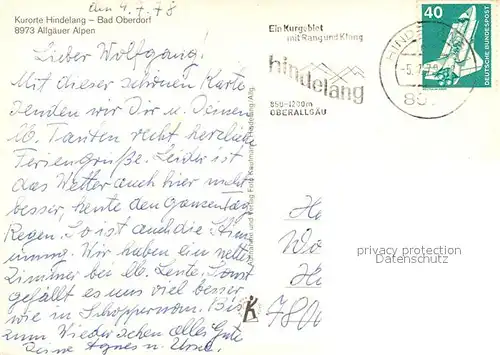 den 4.7.78
Kurorte Hindelang – Bad Oberdorf
8973 Allgäuer Alpen
Lieber Wolfgang!
Mit dieser schönen Karte
senden wir Dir u. Deinen
lb. Tanten recht herzliche
Feriengrüße. Leider ist
das Wetter auch hier nicht
besser, heute den ganzen Tag
Regen. So ist auch die Stim
mung. Wir haben ein nettes
Zimmer bei lb. Leute. Sonst
gefällt es uns viel besser
wie in Schoppernau. Bis
zum Wiedersehen alles Gute
Agnes u.
Ein Kurgebiet
mit Rang und Klang
hindelang
850–1200m
OBERALLGÄU
HINDE
-5.7.78
897
40
DEUTSCHE BUNDESPOST
He
Wo
privacy protection
Datenschutz
780